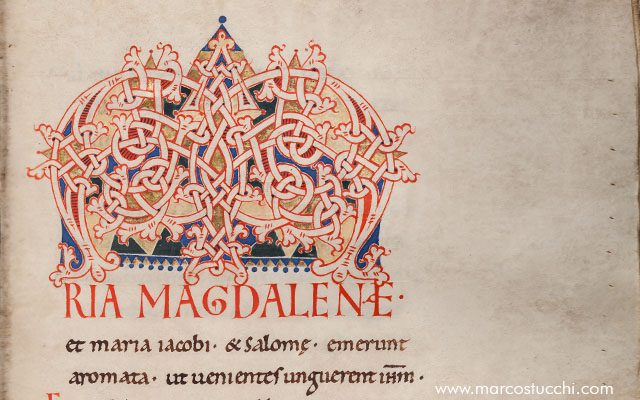 MA
RIA MAGDALENÆ·
et maria iacobi· & Salomę· emerunt
aromata· ut uenientes unguerent ihm̄·
www.marcostucchi.com